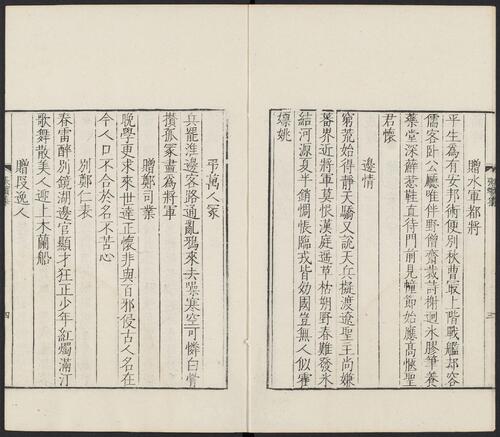 贈水軍都將
平生為有安邦術便別秋曹最上階戰艦却容
儒客卧公廳唯伴野僧齋裁詩榭迥氷膠筆養
藥堂深蘚惹鞋直待門前見幢節始應髙愜聖
君懷
邊情
窮荒始得靜天驕又說天兵擬渡遼聖主尚嫌
蕃界近將軍莫恨漢庭遥草枯朔野春難發氷
結河源夏半銷惆悵臨戎皆効國豈無人似霍
嫖姚
三
弔萬人冢
兵罷淮邊客路通亂鴉來去噪寒空可憐白骨
攢孤冢盡為將軍
贈鄭司業
晚學更求來世達正懷非與百邪侵古人名在
今人口不合於名不苦心
別鄭仁表
春雷醉別鏡湖邊官顯才狂正少年紅燭滿汀
歌舞散美人迎上木蘭船
贈段逸人
四